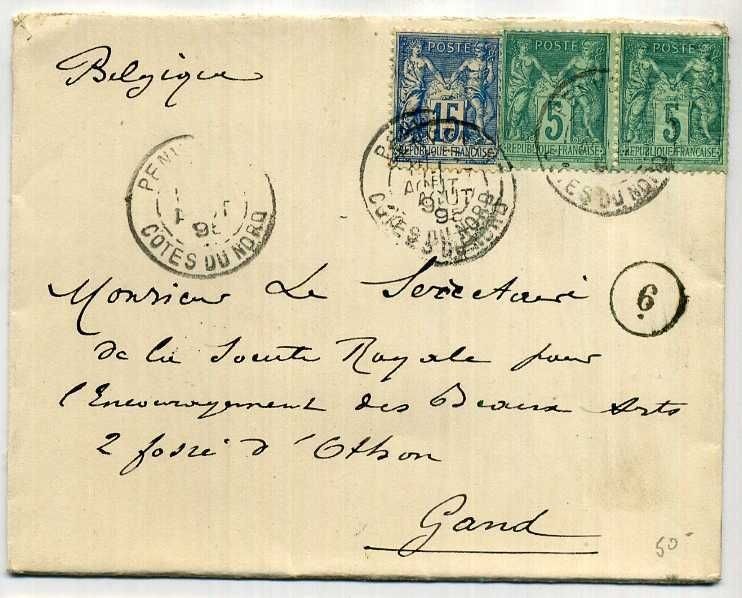 Belgique
POSTE
15
REPUBLIQUE FRANÇAISE
POSTE
5
REPUBLIQUE FRANÇAISE
POSTE
5
REPUBLIQUE FRANÇAISE
COTES DU NORD
AOUT
95
COTES DU NORD
COTES DU NORD
6
Monsieur Le Secrétaire
de la Société Royale pour
l'Encouragement des Beaux Arts
2 fossé d'Othon
Gand
50